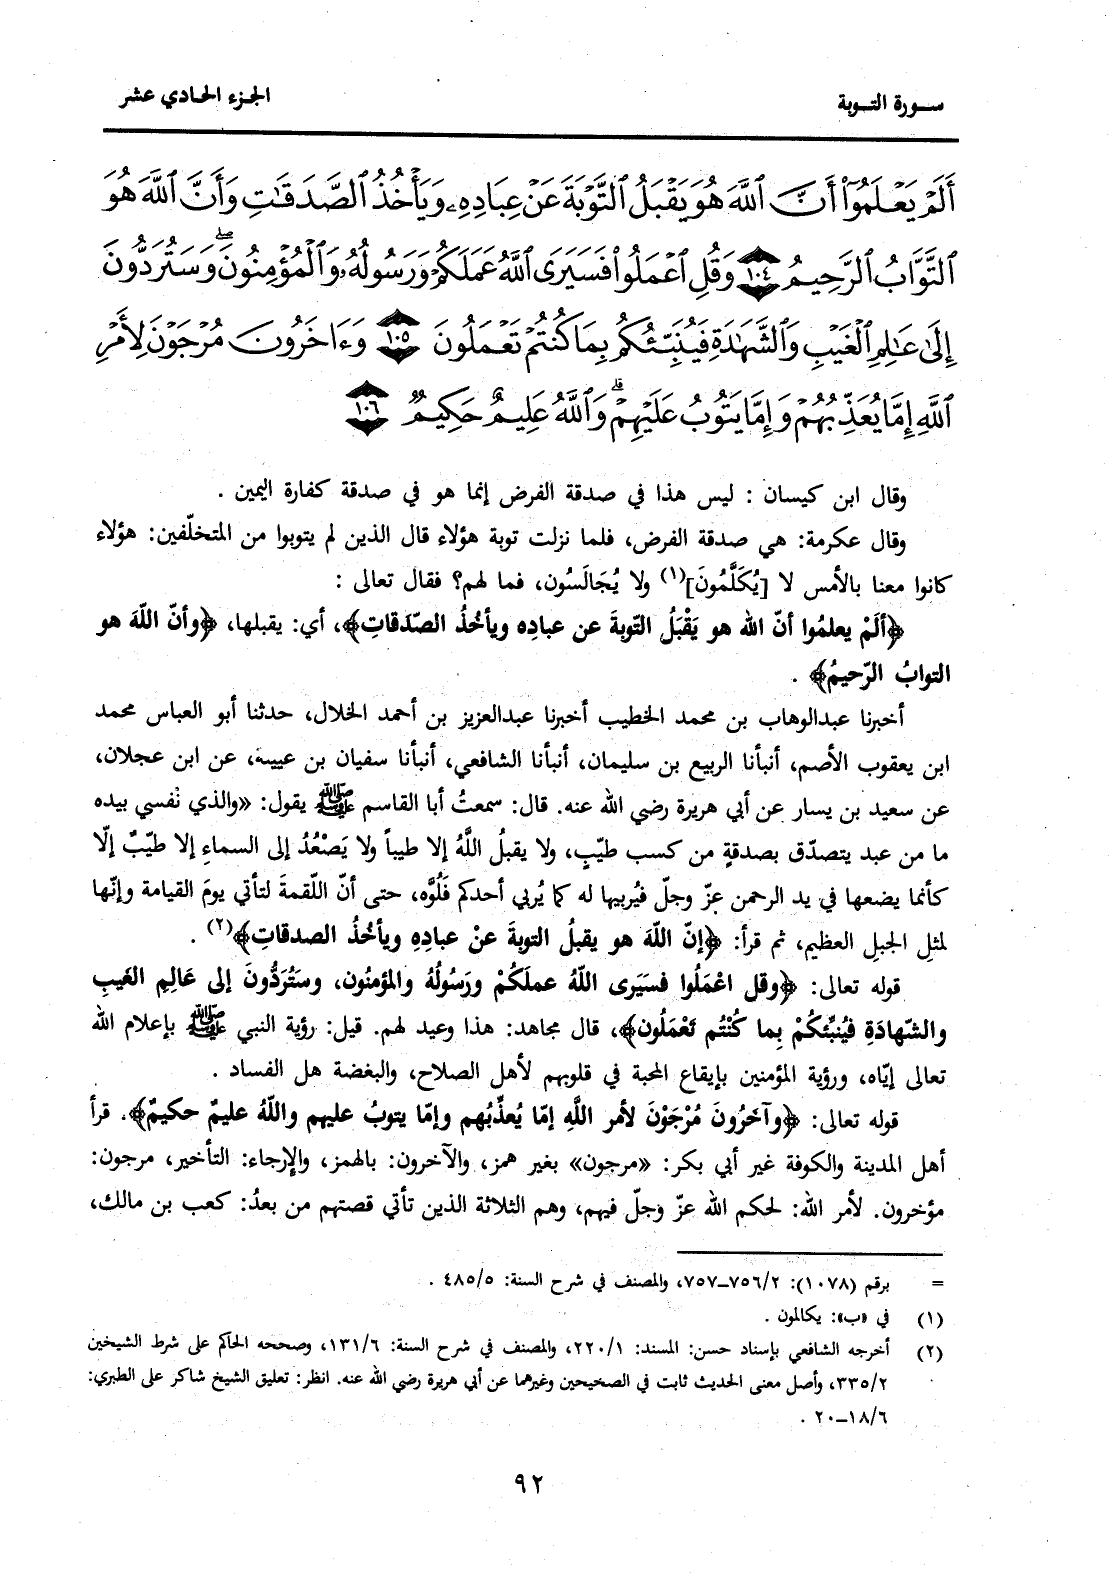 سورة التوبة
الجزء الحادي عشر
أَلَمْ يَعْلَمُوٓا۟ أَنَّ ٱللَّهَ هُوَ يَقْبَلُ ٱلتَّوْبَةَ عَنْ عِبَادِهِۦ وَيَأْخُذُ ٱلصَّدَقَٰتِ وَأَنَّ ٱللَّهَ هُوَ
ٱلتَّوَّابُ ٱلرَّحِيمُ ١٠٤ وَقُلِ ٱعْمَلُوا۟ فَسَيَرَى ٱللَّهُ عَمَلَكُمْ وَرَسُولُهُۥ وَٱلْمُؤْمِنُونَ ۖ وَسَتُرَدُّونَ
إِلَىٰ عَٰلِمِ ٱلْغَيْبِ وَٱلشَّهَٰدَةِ فَيُنَبِّئُكُم بِمَا كُنتُمْ تَعْمَلُونَ ١٠٥ وَءَاخَرُونَ مُرْجَوْنَ لِأَمْرِ
ٱللَّهِ إِمَّا يُعَذِّبُهُمْ وَإِمَّا يَتُوبُ عَلَيْهِمْ ۗ وَٱللَّهُ عَلِيمٌ حَكِيمٌ ١٠٦
وقال ابن كيسان : ليس هذا في صدقة الفرض إنما هو في صدقة كفارة اليمين .
وقال عكرمة: هي صدقة الفرض، فلما نزلت توبة هؤلاء قال الذين لم يتوبوا من المتخلّفين: هؤلاء
كانوا معنا بالأمس لا [يُكَلَّمُونَ](١) ولا يُجَالَسُون، فما لهم؟ فقال تعالى :
﴿أَلَمْ يعلمُوا أنّ الله هو يَقْبَلُ التّوبةَ عن عبادِه ويأخُذُ الصّدَقاتِ﴾، أي: يقبلها، ﴿وأنّ اللّهَ هو
التوابُ الرّحيمُ﴾ .
أخبرنا عبدالوهاب بن محمد الخطيب أخبرنا عبدالعزيز بن أحمد الخلال، حدثنا أبو العباس محمد
ابن يعقوب الأصم، أنبأنا الربيع بن سليمان، أنبأنا الشافعي، أنبأنا سفيان بن عيينة، عن ابن عجلان،
عن سعيد بن يسار عن أبي هريرة رضي الله عنه. قال: سمعتُ أبا القاسم ﷺ يقول: «والذي نَفسي بيده
ما من عبد يتصدّق بصدقةٍ من كسب طيّبٍ، ولا يقبلُ اللَّهُ إلا طيباً ولا يَصْعُدُ إلى السماءِ إلا طيّبٌ إلّا
كأنما يضعها في يد الرحمن عزّ وجلّ فيُربيها له كما يُربي أحدكم فَلُوَّه، حتى أنّ اللّقمةَ لتأتي يومَ القيامة وإنّها
لمثلِ الجبلِ العظيم، ثم قرأ: ﴿إنّ اللّهَ هو يقبلُ التوبةَ عنْ عبادِهِ ويأخُذُ الصدقاتِ﴾(٢) .
قوله تعالى: ﴿وقل اعْمَلُوا فسَيَرى اللّهُ عملَكُمْ ورَسُولُهُ والمؤمنُون، وسَتُرَدُّونَ إلى عَالِمِ الغَيبِ
والشّهادَةِ فيُنبِّئكُمْ بِما كُنْتُم تَعْمَلُون﴾، قال مجاهد: هذا وعيد لهم. قيل: رؤية النبي ﷺ بإعلام الله
تعالى إيّاه، ورؤية المؤمنين بإيقاع المحبة في قلوبهم لأهل الصلاح، والبغضة هل الفساد .
قوله تعالى: ﴿وآخَرُونَ مُرْجَوْنَ لأمر اللَّهِ إمّا يُعذِّبُهم وإمّا يتوبُ عليهم واللّهُ عليمٌ حكيمٌ﴾. قرأ
أهل المدينة والكوفة غير أبي بكر: «مرجون» بغير همز، والآخرون: بالهمز، والإرجاء: التأخير، مرجون:
مؤخرون. لأمر الله: لحكم الله عزّ وجلّ فيهم، وهم الثلاثة الذين تأتي قصتهم من بعدُ: كعب بن مالك،
= برقم (١٠٧٨): ٧٥٦/٢–٧٥٧، والمصنف في شرح السنة: ٤٨٥/٥ .
(١) في «ب»: يكالمون .
(٢) أخرجه الشافعي بإسناد حسن: المسند: ٢٢٠/١، والمصنف في شرح السنة: ١٣١/٦، وصححه الحاكم على شرط الشيخين
٣٣٥/٢، وأصل معنى الحديث ثابت في الصحيحين وغيرهما عن أبي هريرة رضي الله عنه. انظر: تعليق الشيخ شاكر على الطبري:
١٨/٦–٢٠ .
٩٢